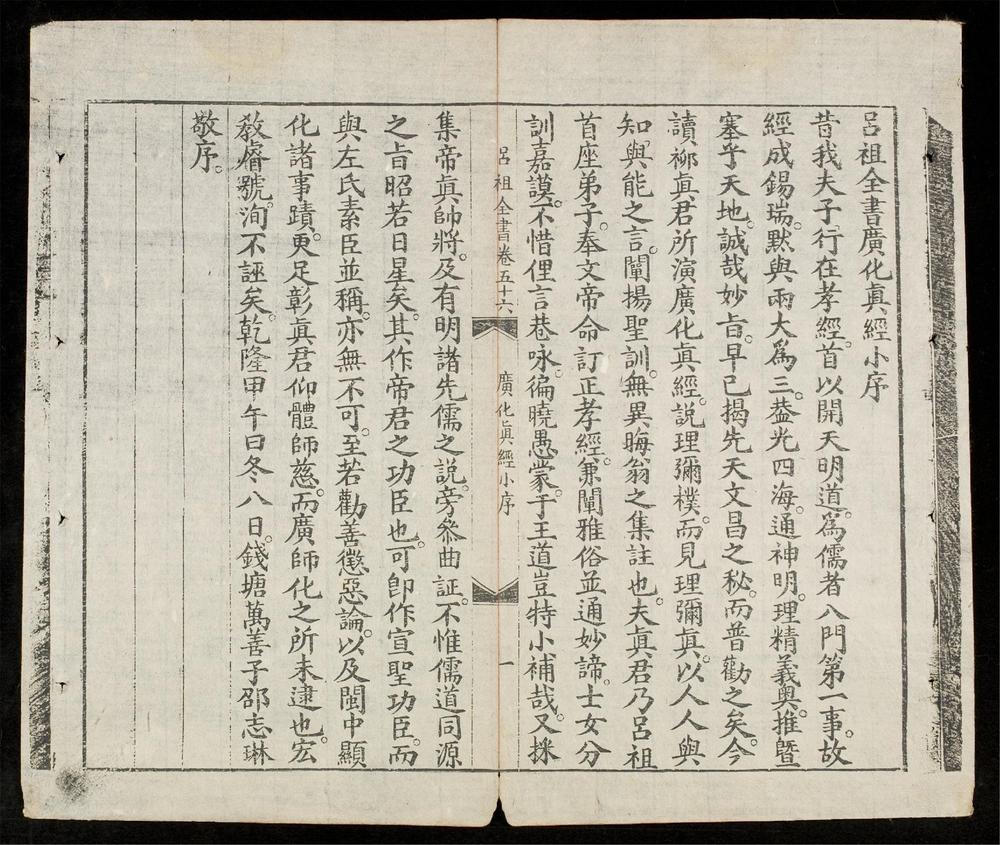 呂祖全書廣化眞經小序
昔我夫子行在孝經。首以開天明道。爲儒者入門第一事。故
經成錫瑞。默與兩大爲三。葢光四海。通神明。理精義奧。推曁
塞乎天地。誠哉妙旨。早已揭先天文昌之秘。而普勸之矣。今
讀栁眞君所演廣化眞經。說理彌樸。而見理彌眞。以人人與
知與能之言。闡揚聖訓。無異晦翁之集註也。夫眞君乃呂祖
首座弟子。奉文帝命訂正孝經。兼闡雅俗並通妙諦。士女分
訓嘉謨。不惜俚言巷咏。徧曉愚蒙。于王道豈特小補哉。又採
呂祖全書卷五十六 廣化眞經小序 一
集帝眞帥將。及有明諸先儒之說。旁叅曲証。不惟儒道同源
之旨昭若日星矣。其作帝君之功臣也。可卽作宣聖功臣。而
與左氏素臣並稱。亦無不可。至若勸善懲惡論。以及閩中顯
化諸事蹟。更足彰眞君仰體師慈。而廣師化之所未逮也。宏
敎膚號。洵不誣矣。乾隆甲午日冬八日。錢塘萬善子邵志琳
敬序。